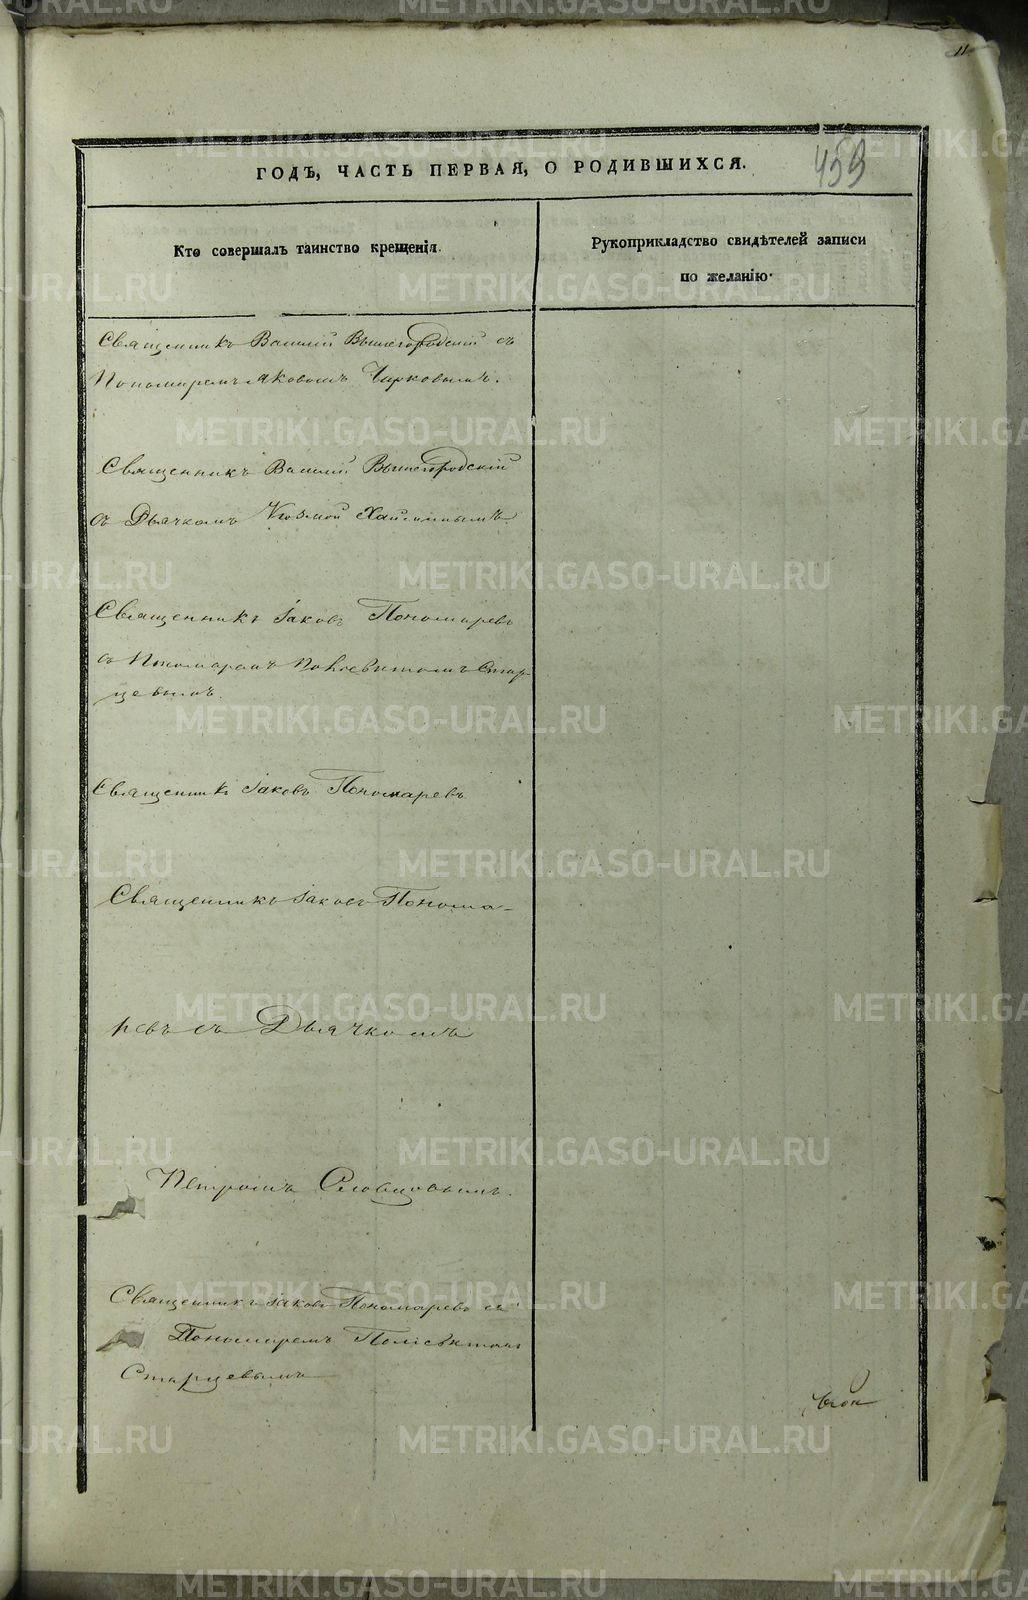 11
ГОДЪ, ЧАСТЬ ПЕРВАЯ, О РОДИВШИХСЯ.
459
Кто совершалъ таинство крещенія.
Рукоприкладство свидѣтелей записи
по желанію.
Священникъ Василій Вышегородскій съ
Пономаремъ Яковомъ Чирковымъ.
Священникъ Василій Вышегородскій
съ Дьячкомъ Козмой
Священникъ Іаковъ Пономаревъ
съ Пономаремъ Стар-
цевымъ.
Священникъ Іаковъ Пономаревъ
Священникъ Іаковъ Понома-
ревъ съ Дьячкомъ
Петромъ Словцовымъ.
Священникъ Іаковъ Пономаревъ съ
Пономаремъ
Старцевымъ
METRIKI.GASO-URAL.RU